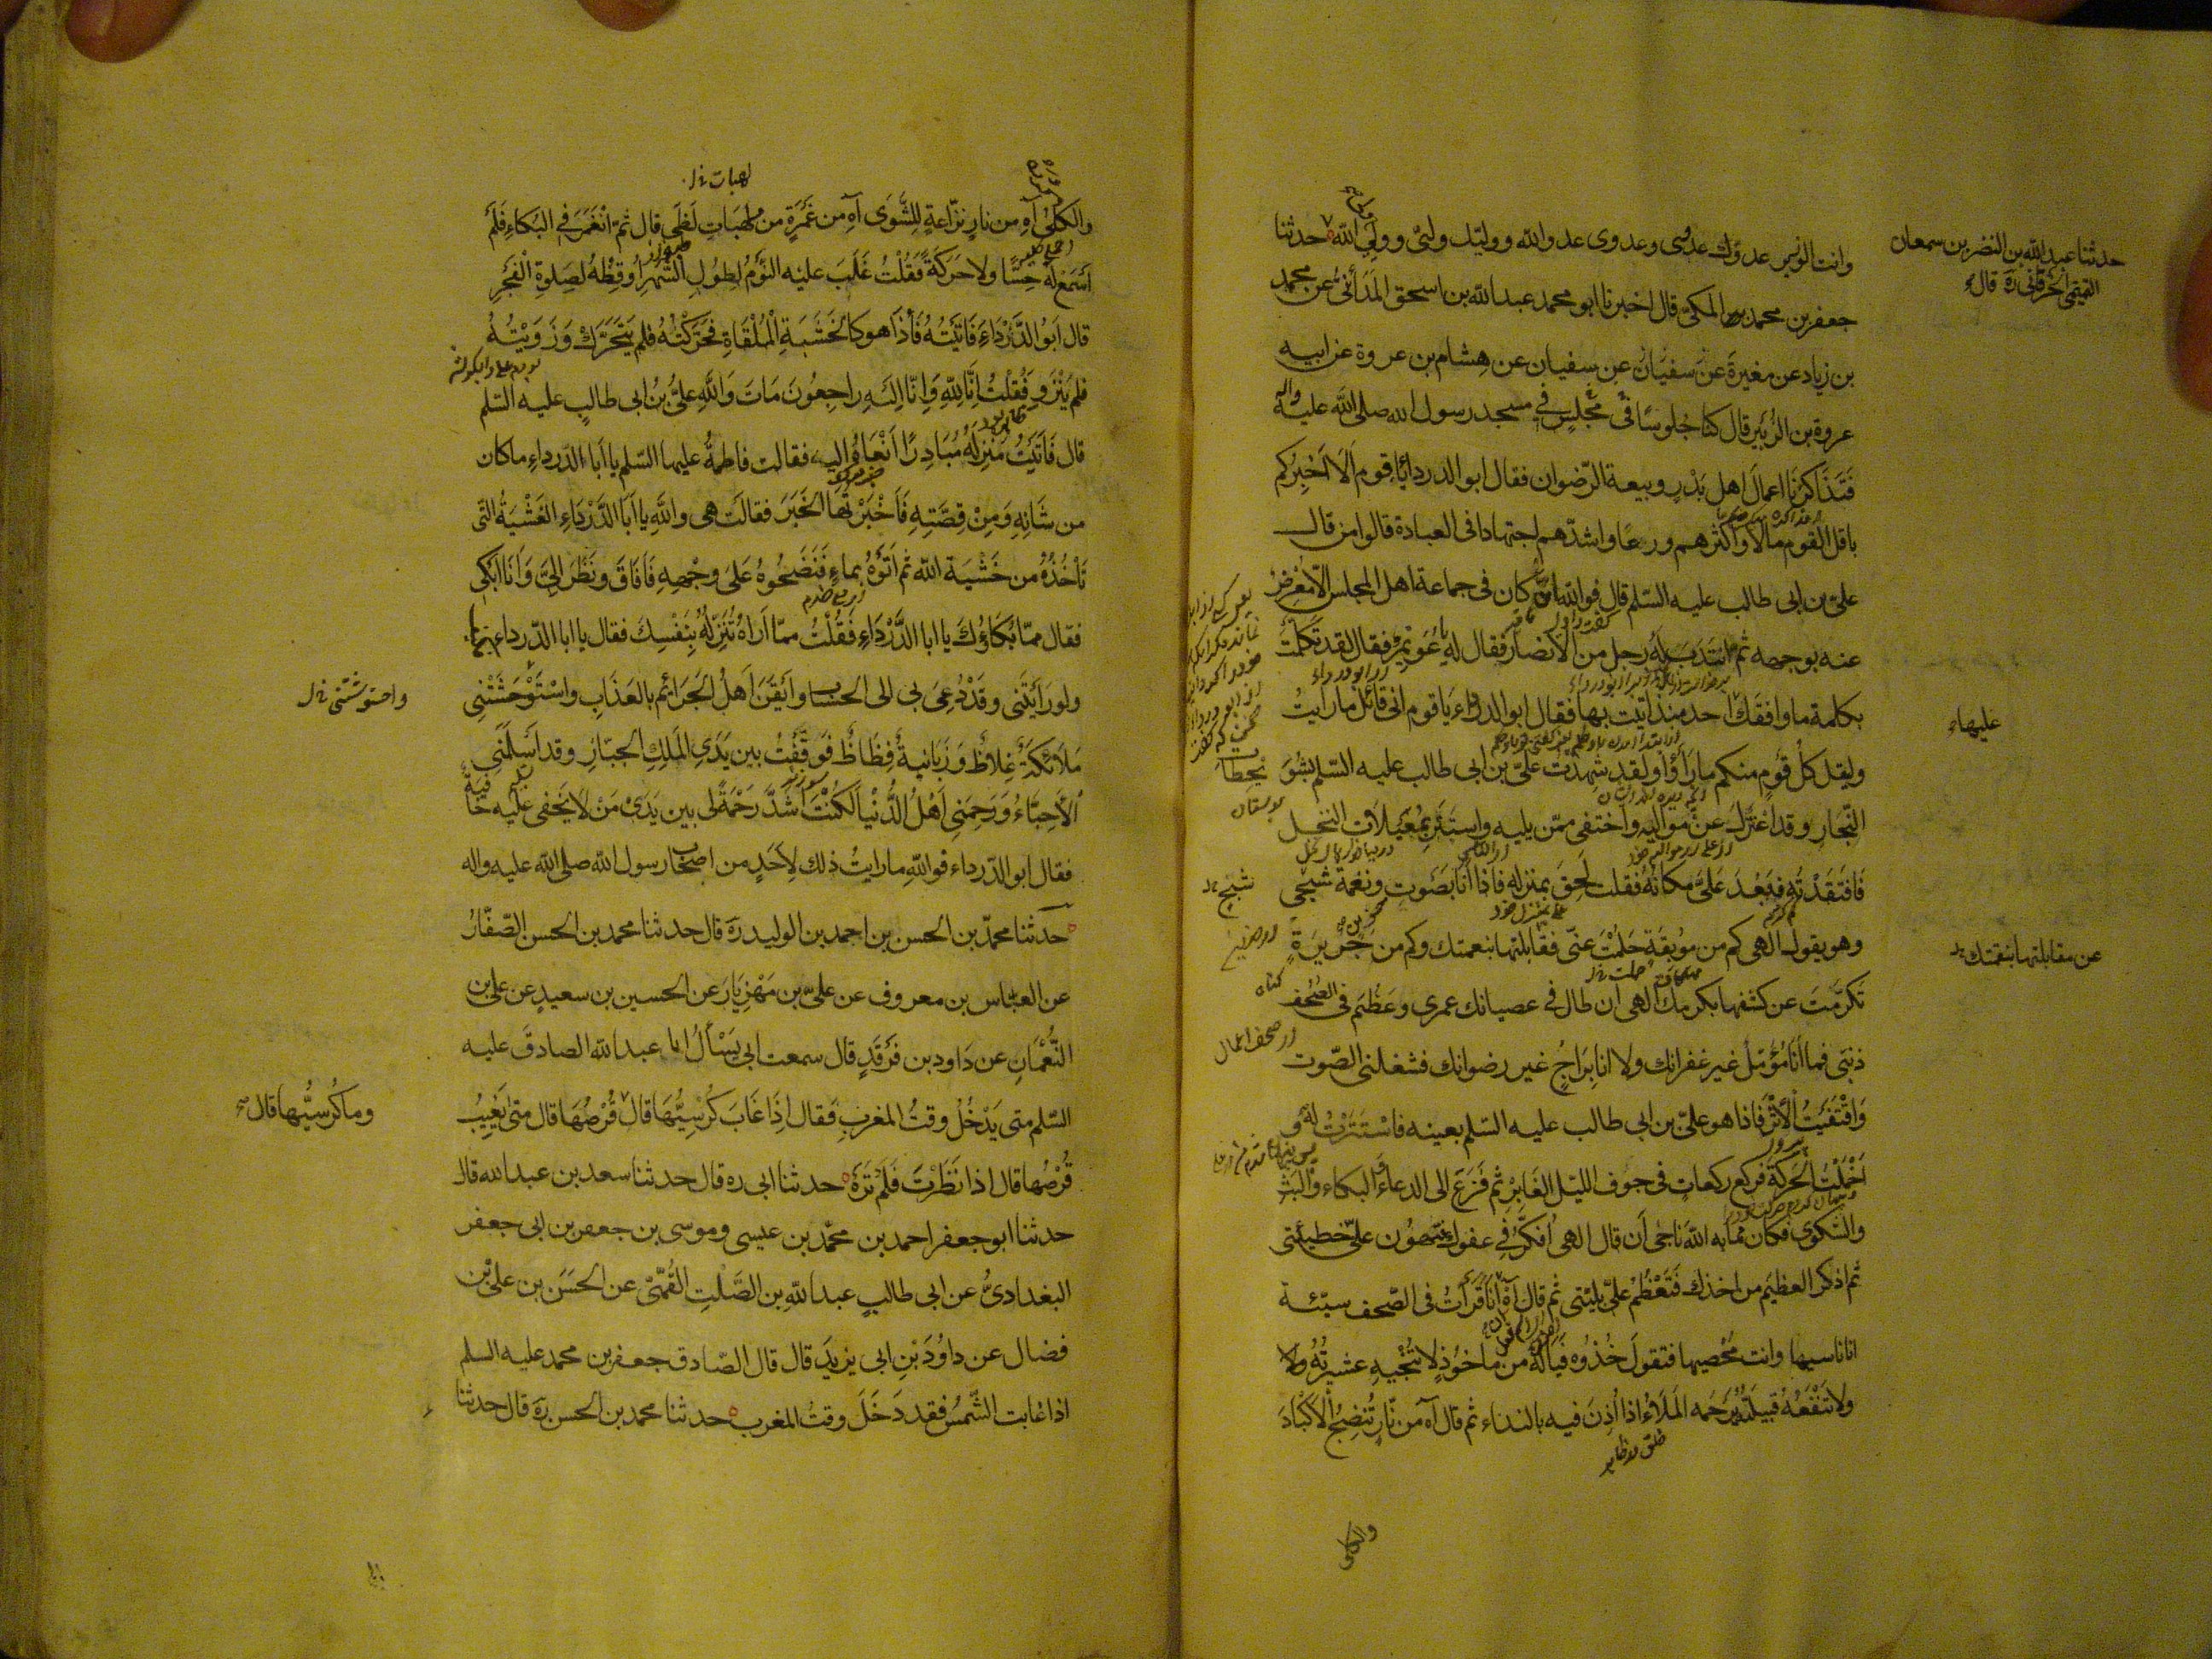 وانت الوزير عدوك عدوي وعدوي عدو الله ووليك وليي ووليي الله حدثنا
حدثنا عبد الله بن النضر بن سمعان
التميمي الخرقاني ره قال
جعفر بن محمد المكي قال اخبرنا ابو محمد عبد الله بن اسحق المدائني عن محمد
بن زياد عن مغيرة عن سفيان عن سفيان عن هشام بن عروة عن ابيه
عروة بن الزبير قال كنا جلوسا في مجلس في مسجد رسول الله صلى الله عليه واله
فتذاكرنا اعمال اهل بدر وبيعة الرضوان فقال ابو الدرداء يا قوم الا اخبركم
باقل القوم مالا واكثرهم ورعا واشدهم اجتهادا في العبادة قالوا من قال
علي بن ابي طالب عليه السلم قال فوالله ان كان في جماعة اهل المجلس الا معرض
عنه بوجهه ثم انتدب له رجل من الانصار فقال له يا عويمر فقال لقد تكلمت
بكلمة ما وافقك احد منذ اتيت بها فقال ابو الدرداء يا قوم اني قائل ما رايت
عليها
وليقل كل قوم منكم ما راوا ولقد شهدت علي بن ابي طالب عليه السلم بشو يحطات
النجار وقد اعتزل عن مواليه واختفى ممن يليه واستتر بمغيلات النخل
فافتقدته فبعد علي مكانه فقلت لحق بمنزله فاذا انا بصوت ونغمة شجي
شجي خ ل
وهو يقول الهي كم من موبقة حلمت عني فقابلتها بنعمتك وكم من جريرة
عن مقابلتها بنقمتك خ ل
تكرمت عن كشفها بكرمك الهي ان طال في عصيانك عمري وعظم في الصحف
ذنبي فما انا مؤمل غير غفرانك ولا انا براج غير رضوانك فشغلني الصوت
واقتفيت الاثر فاذا هو علي بن ابي طالب عليه السلم بعينه فاستترت له و
اخملت الحركة فركع ركعات في جوف الليل الغابر ثم فزع الى الدعاء والبكاء والبث
والشكوى فكان مما به الله ناجى ان قال الهي افكر في عفوك فتهون علي خطيئتي
ثم اذكر العظيم من اخذك فتعظم علي بليتي ثم قال آه ان انا قرات في الصحف سيئة
انا ناسيها وانت محصيها فتقول خذوه فياله من ماخوذ لا تنجيه عشيرته ولا
ولا تنفعه قبيلته يرحمه الملاء اذا اذن فيه بالنداء ثم قال آه من نار تنضج الاكباد
والكلى
لهبات خ ل
والكلى آه من نار نزاعة للشوى آه من غمرة من ملهبات لظى قال ثم انغمر في البكاء فلم
اسمع له حسا ولا حركة فقلت غلب عليه النوم لطول السهر اوقظه لصلوة الفجر
قال ابو الدرداء فاتيته فاذا هو كالخشبة الملقاة فحركته فلم يتحرك وزويته
فلم ينزو فقلت انا لله وانا اليه راجعون مات والله علي بن ابي طالب عليه السلم
قال فاتيت منزله مبادرا انعاه اليهم فقالت فاطمة عليها السلم يا ابا الدرداء ما كان
من شانه ومن قصته فاخبرتها الخبر فقالت هي والله يا ابا الدرداء الغشية التي
تاخذه من خشية الله ثم اتوه بماء فنضحوه على وجهه فافاق ونظر الي وانا ابكي
فقال مما بكاؤك يا ابا الدرداء فقلت مما اراه تنزله بنفسك فقال يا ابا الدرداء
ولو رايتني وقد دعي بي الى الحساب وايقن اهل الجرائم بالعذاب واستوحشتني
واحتوشتني خ ل
ملائكة غلاظ وزبانية فظاظ فوقفت بين يدي الملك الجبار وقد اسلمني
الاحباء ورحمني اهل الدنيا لكنت اشد رحمة لي بين يدي من لا يخفى عليه خافية
فقال ابو الدرداء فوالله ما رايت ذلك لاحد من اصحاب رسول الله صلى الله عليه واله
حدثنا محمد بن الحسن بن احمد بن الوليد ره قال حدثنا محمد بن الحسن الصفار
عن العباس بن معروف عن علي بن مهزيار عن الحسين بن سعيد عن علي بن
النعمان عن داود بن فرقد قال سمعت ابي يسأل ابا عبد الله الصادق عليه
السلم متى يدخل وقت المغرب فقال اذا غاب كرسيها قال قرصها قال متى يغيب
وما كرسيها قال صح
قرصها قال اذا نظرت فلم تره حدثنا ابي ره قال حدثنا سعد بن عبد الله قال
حدثنا ابو جعفر احمد بن محمد بن عيسى وموسى بن جعفر بن ابي جعفر
البغدادي عن ابي طالب عبد الله بن الصلت القمي عن الحسن بن علي بن
فضال عن داود بن ابي يزيد قال قال الصادق جعفر بن محمد عليه السلم
اذا غابت الشمس فقد دخل وقت المغرب حدثنا محمد بن الحسن ره قال حدثنا